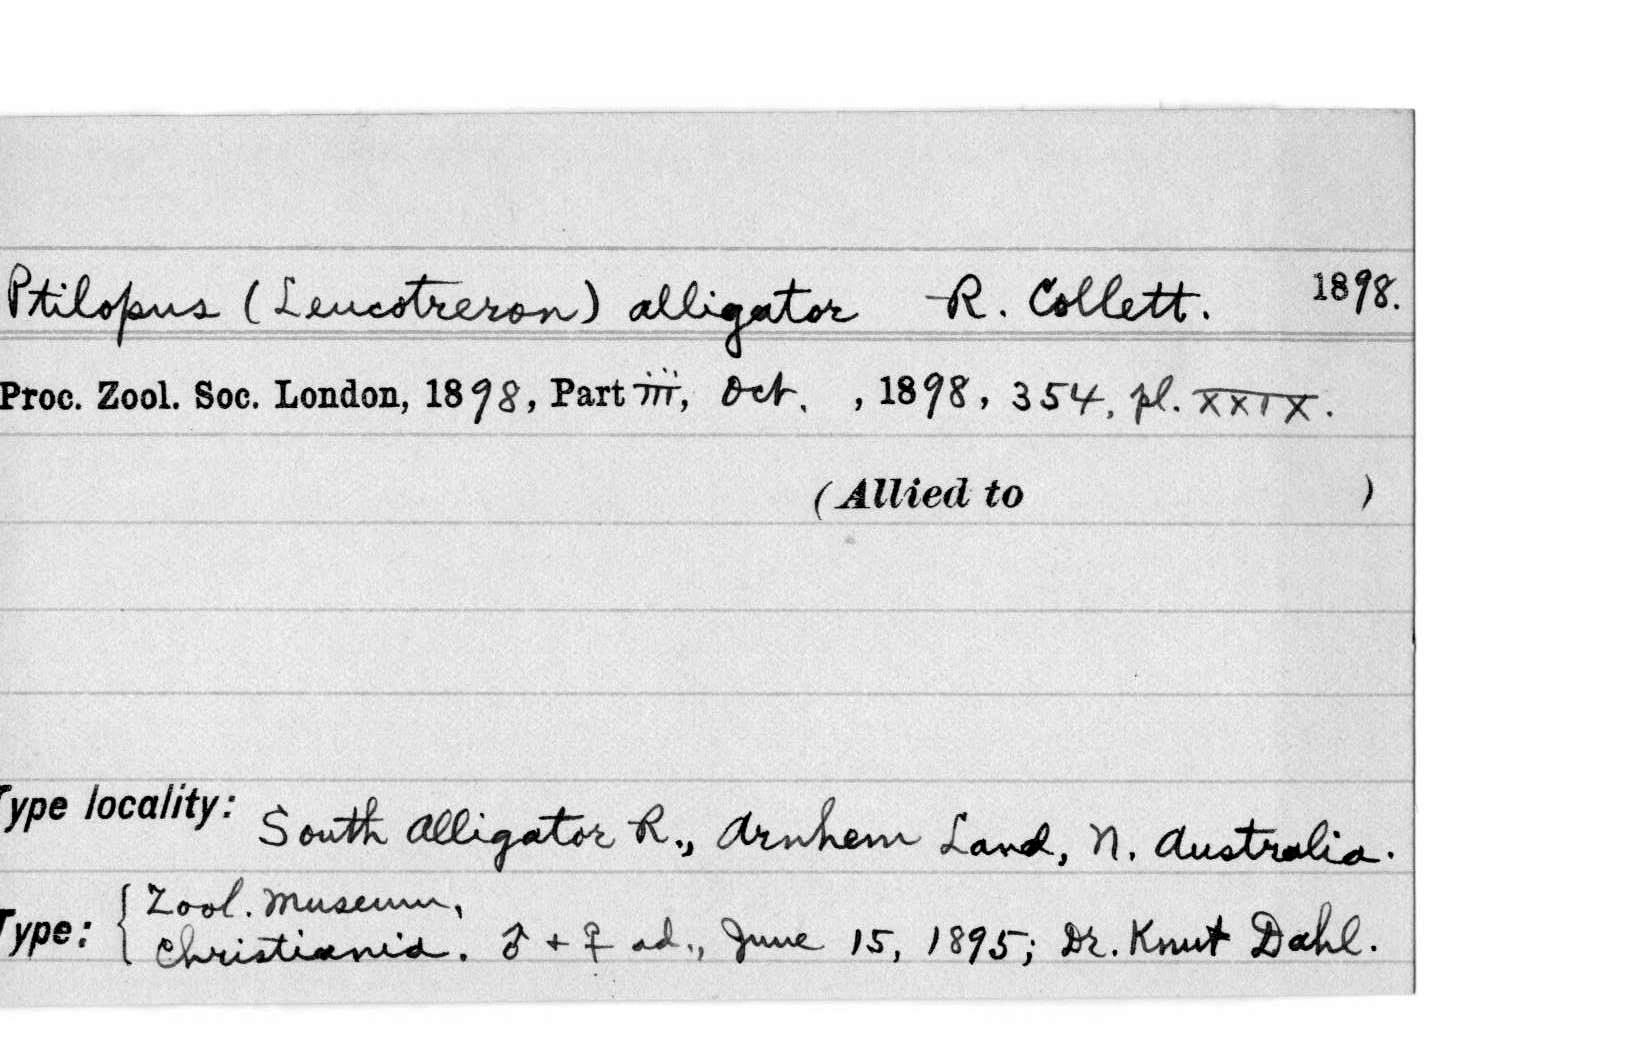 Ptilopus (Leucotreron) alligator R. Collett. 1898.
Proc. Zool. Soc. London, 1898, Part iii, Oct. , 1898, 354, pl. XXIX.
(Allied to )
Type locality: South Alligator R., Arnhem Land, N. Australia.
Type: { Zool. Museum,
Christiania. ♂ + ♀ ad., June 15, 1895; Dr. Knut Dahl.